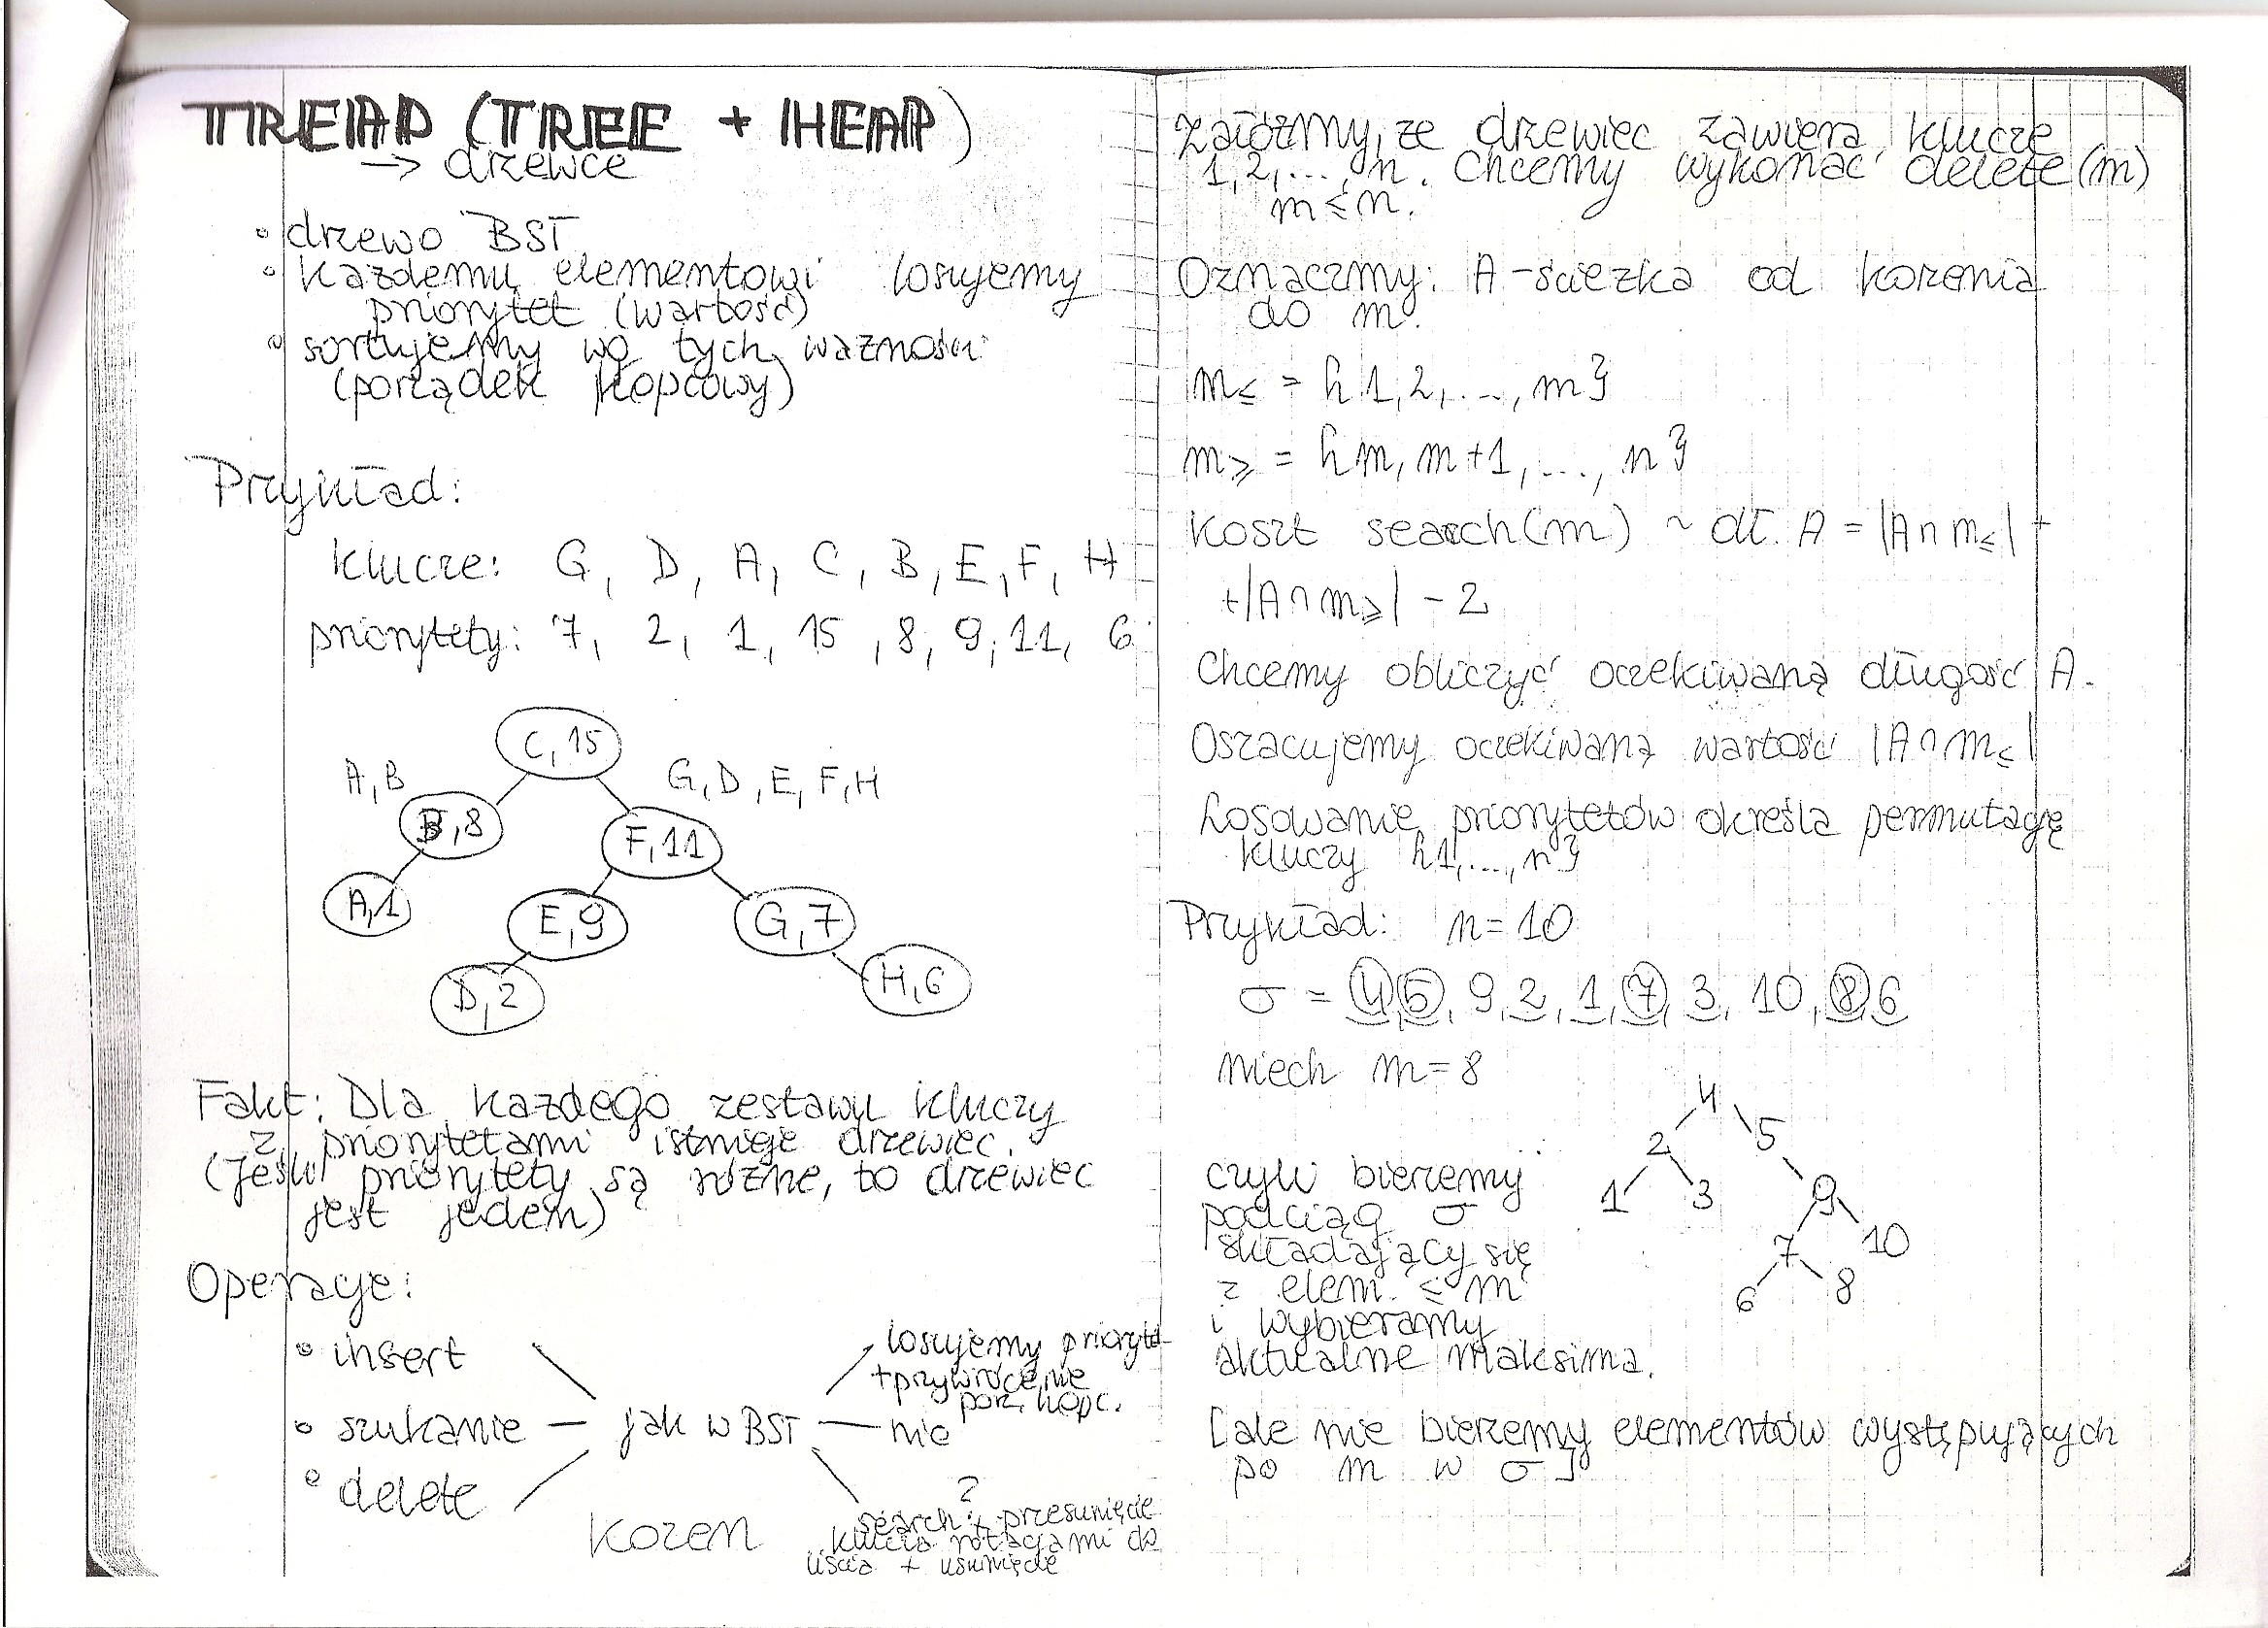 TREAP (TREE + HEAP)
→ drzewce
◦ drzewo BST
◦ każdemu elementowi losujemy
priorytet (wartość)
◦ sortujemy wg tych ważności
(porządek kopcowy)
Przykład:
klucze: G, D, A, C, B, E, F, H
priorytety: 7, 2, 1, 15, 8, 9, 11, 6
C, 15
A, B
G, D, E, F, H
B, 8
F, 11
A, 1
E, 9
G, 7
D, 2
H, 6
Fakt: Dla każdego zestawu kluczy
z priorytetami istnieje drzewiec.
(Jeśli priorytety są różne, to drzewiec
jest jeden)
Operacje:
◦ insert
◦ szukanie
◦ delete
jak w BST
losujemy prioryte
+ przywrócenie
porz. kopc.
nic
?
search + przesunięcie
klucza rotacjami do
liścia + usunięcie
korzen
Załóżmy, że drzewiec zawiera klucze
1, 2, ..., n. Chcemy wykonać delete(m)
m ≤ n.
Oznaczmy: A - ścieżka od korzenia
do m.
m≤ = {1, 2, ..., m}
m≥ = {m, m+1, ..., n}
koszt search(m) ~ dł. A = |A∩m≤| +
+|A∩m≥| - 2
Chcemy obliczyć oczekiwaną długość A.
Oszacujemy oczekiwaną wartość |A∩m≤|
Losowanie priorytetów określa permutację
kluczy {1, ..., n}
Przykład: n = 10
σ = 4, 5, 9, 2, 1, 7, 3, 10, 8, 6
niech m = 8
4
2
5
1
3
9
7
10
6
8
czyli bierzemy
podciąg σ
składający się
z elem. ≤ m
i wybieramy
aktualne maksima.
[ale nie bierzemy elementów występujących
po m w σ]